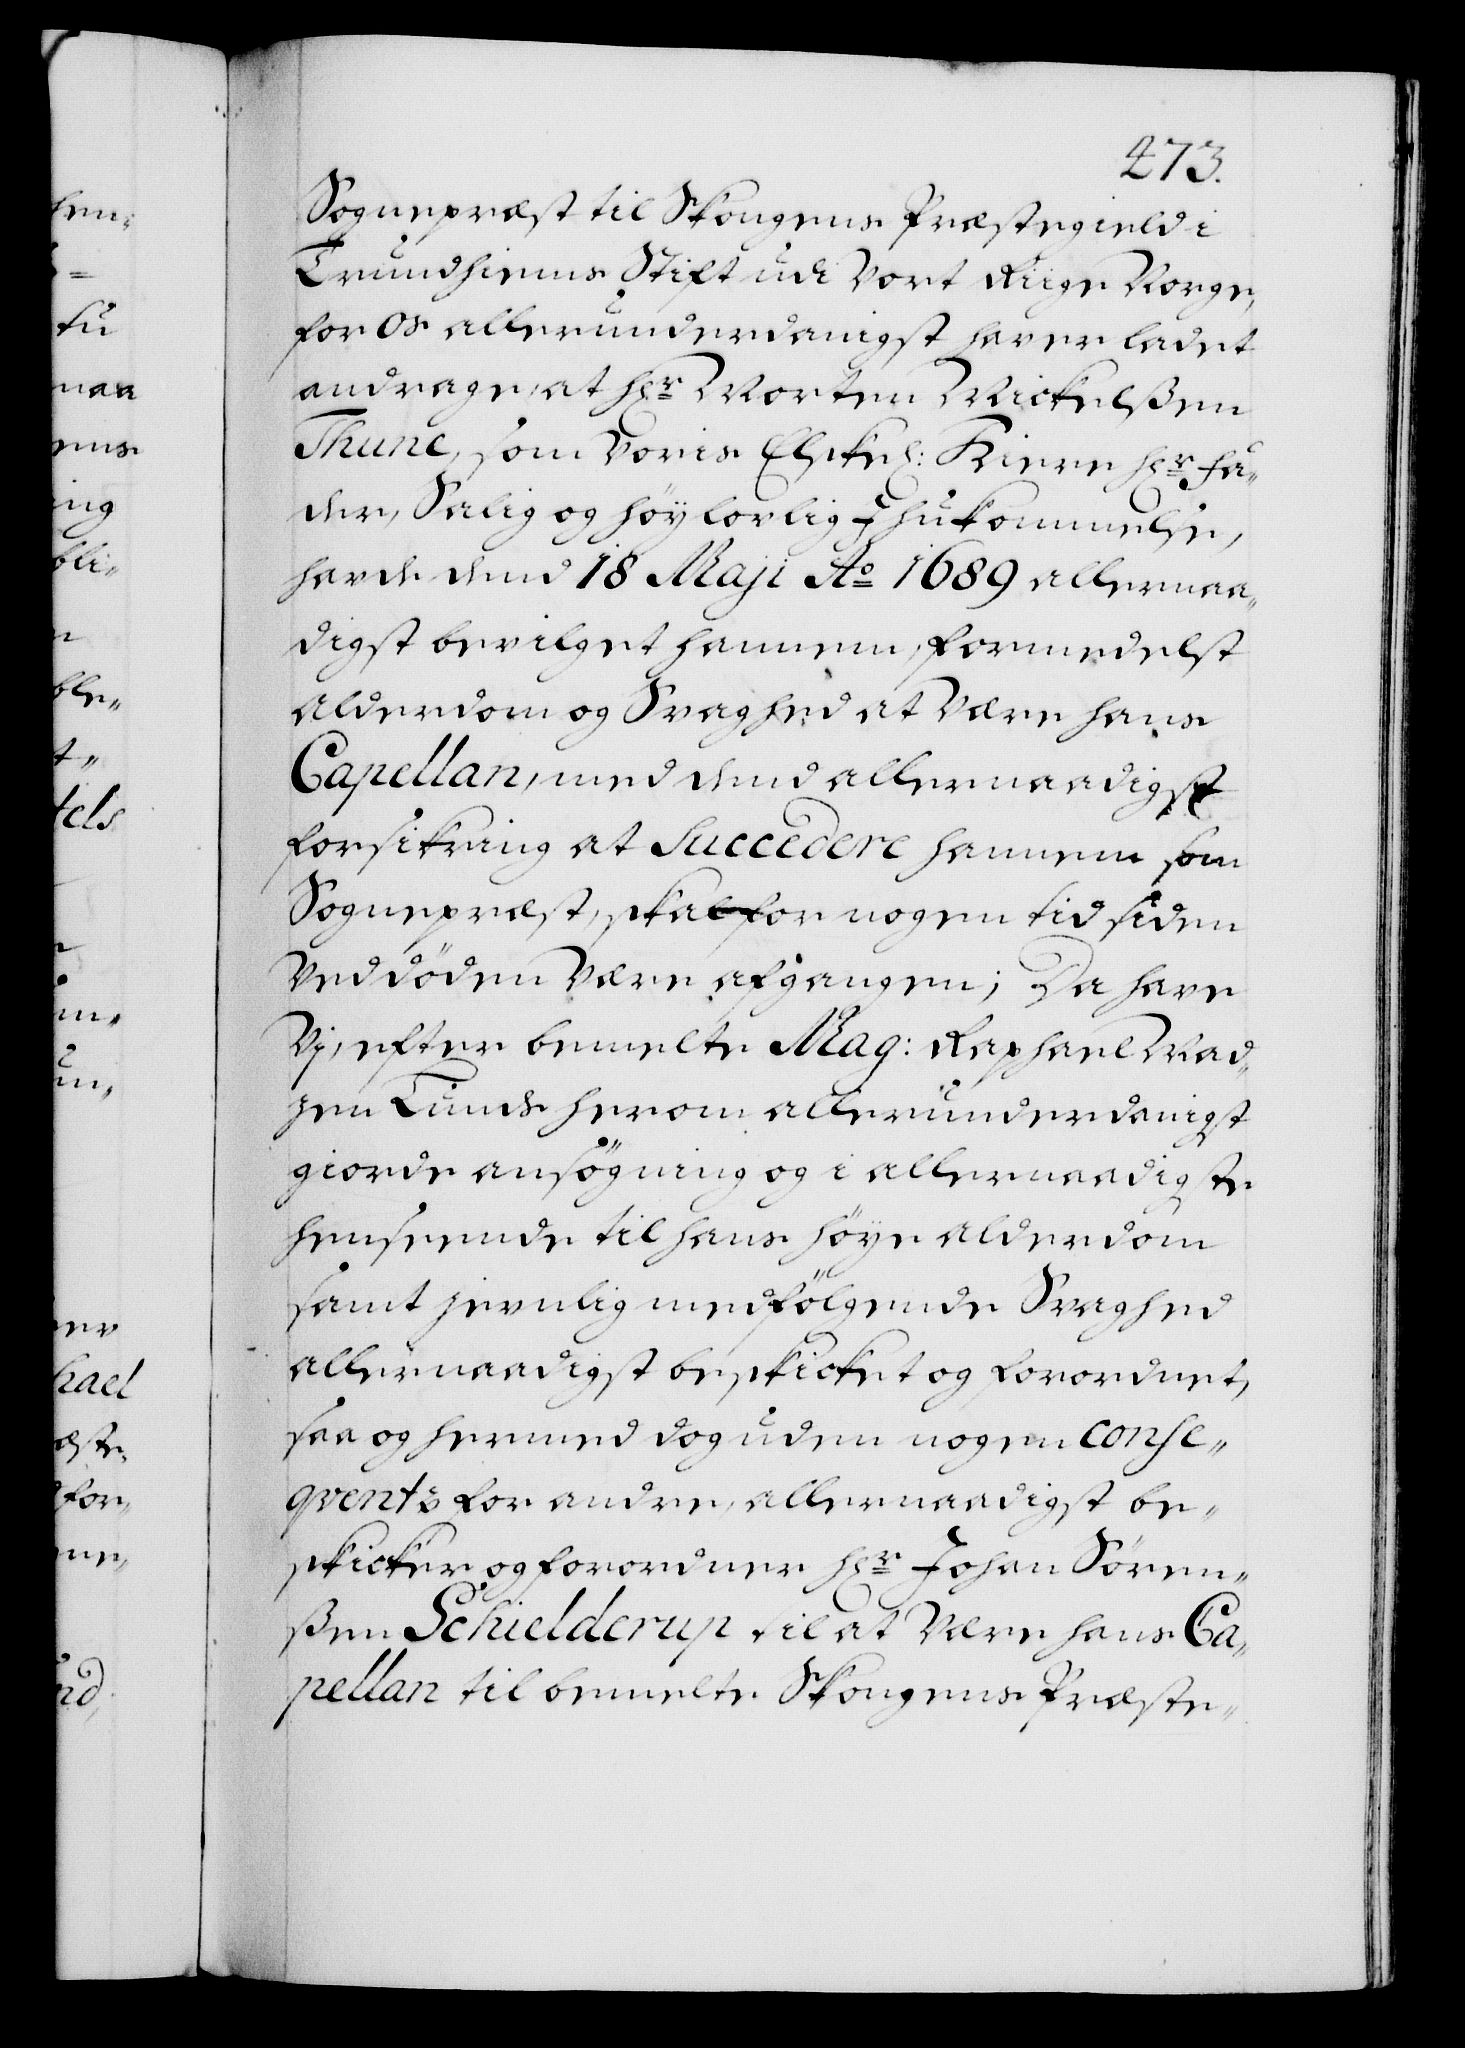 473.
Sognepræst til Skongens Præstegield i
Trundhiems Stift udi Vort Riige Norge,
for Os allerunderdanigst haver ladet
andrage, at hr Morten Mickelßen
Thune, som Voris Elskel: Kiere hr Fa„
der, Salig og höylovlig Ihukommelse,
hafde dend 18 Maji Ao 1689 allernaa„
digst bevilget hannem, formedelst
Alderdom og Svaghed at Være hans
Capellan, med dend allernaadigst
forsikring at Succedere hannem som
Sognepræst, skal for nogen tid siden
Ved döden Være afgangen; Da have
Vj, efter bemelte Mag: Raphael Mad„
zen Lunds herom allerunderdanigst
giorde ansögning og i allernaadigste
henseende til hans höye alderdom
samt jevnlig medfölgende Svaghed
allernaadigst beskicket og forordnet,
saa og hermed dog uden nogen conse„
qvents for andre, allernaadigst be„
skicker og forordner hr Johan Sören„
ßen Schielderup til at Være hans Ca„
pellan til bemelte Skongens Præste„